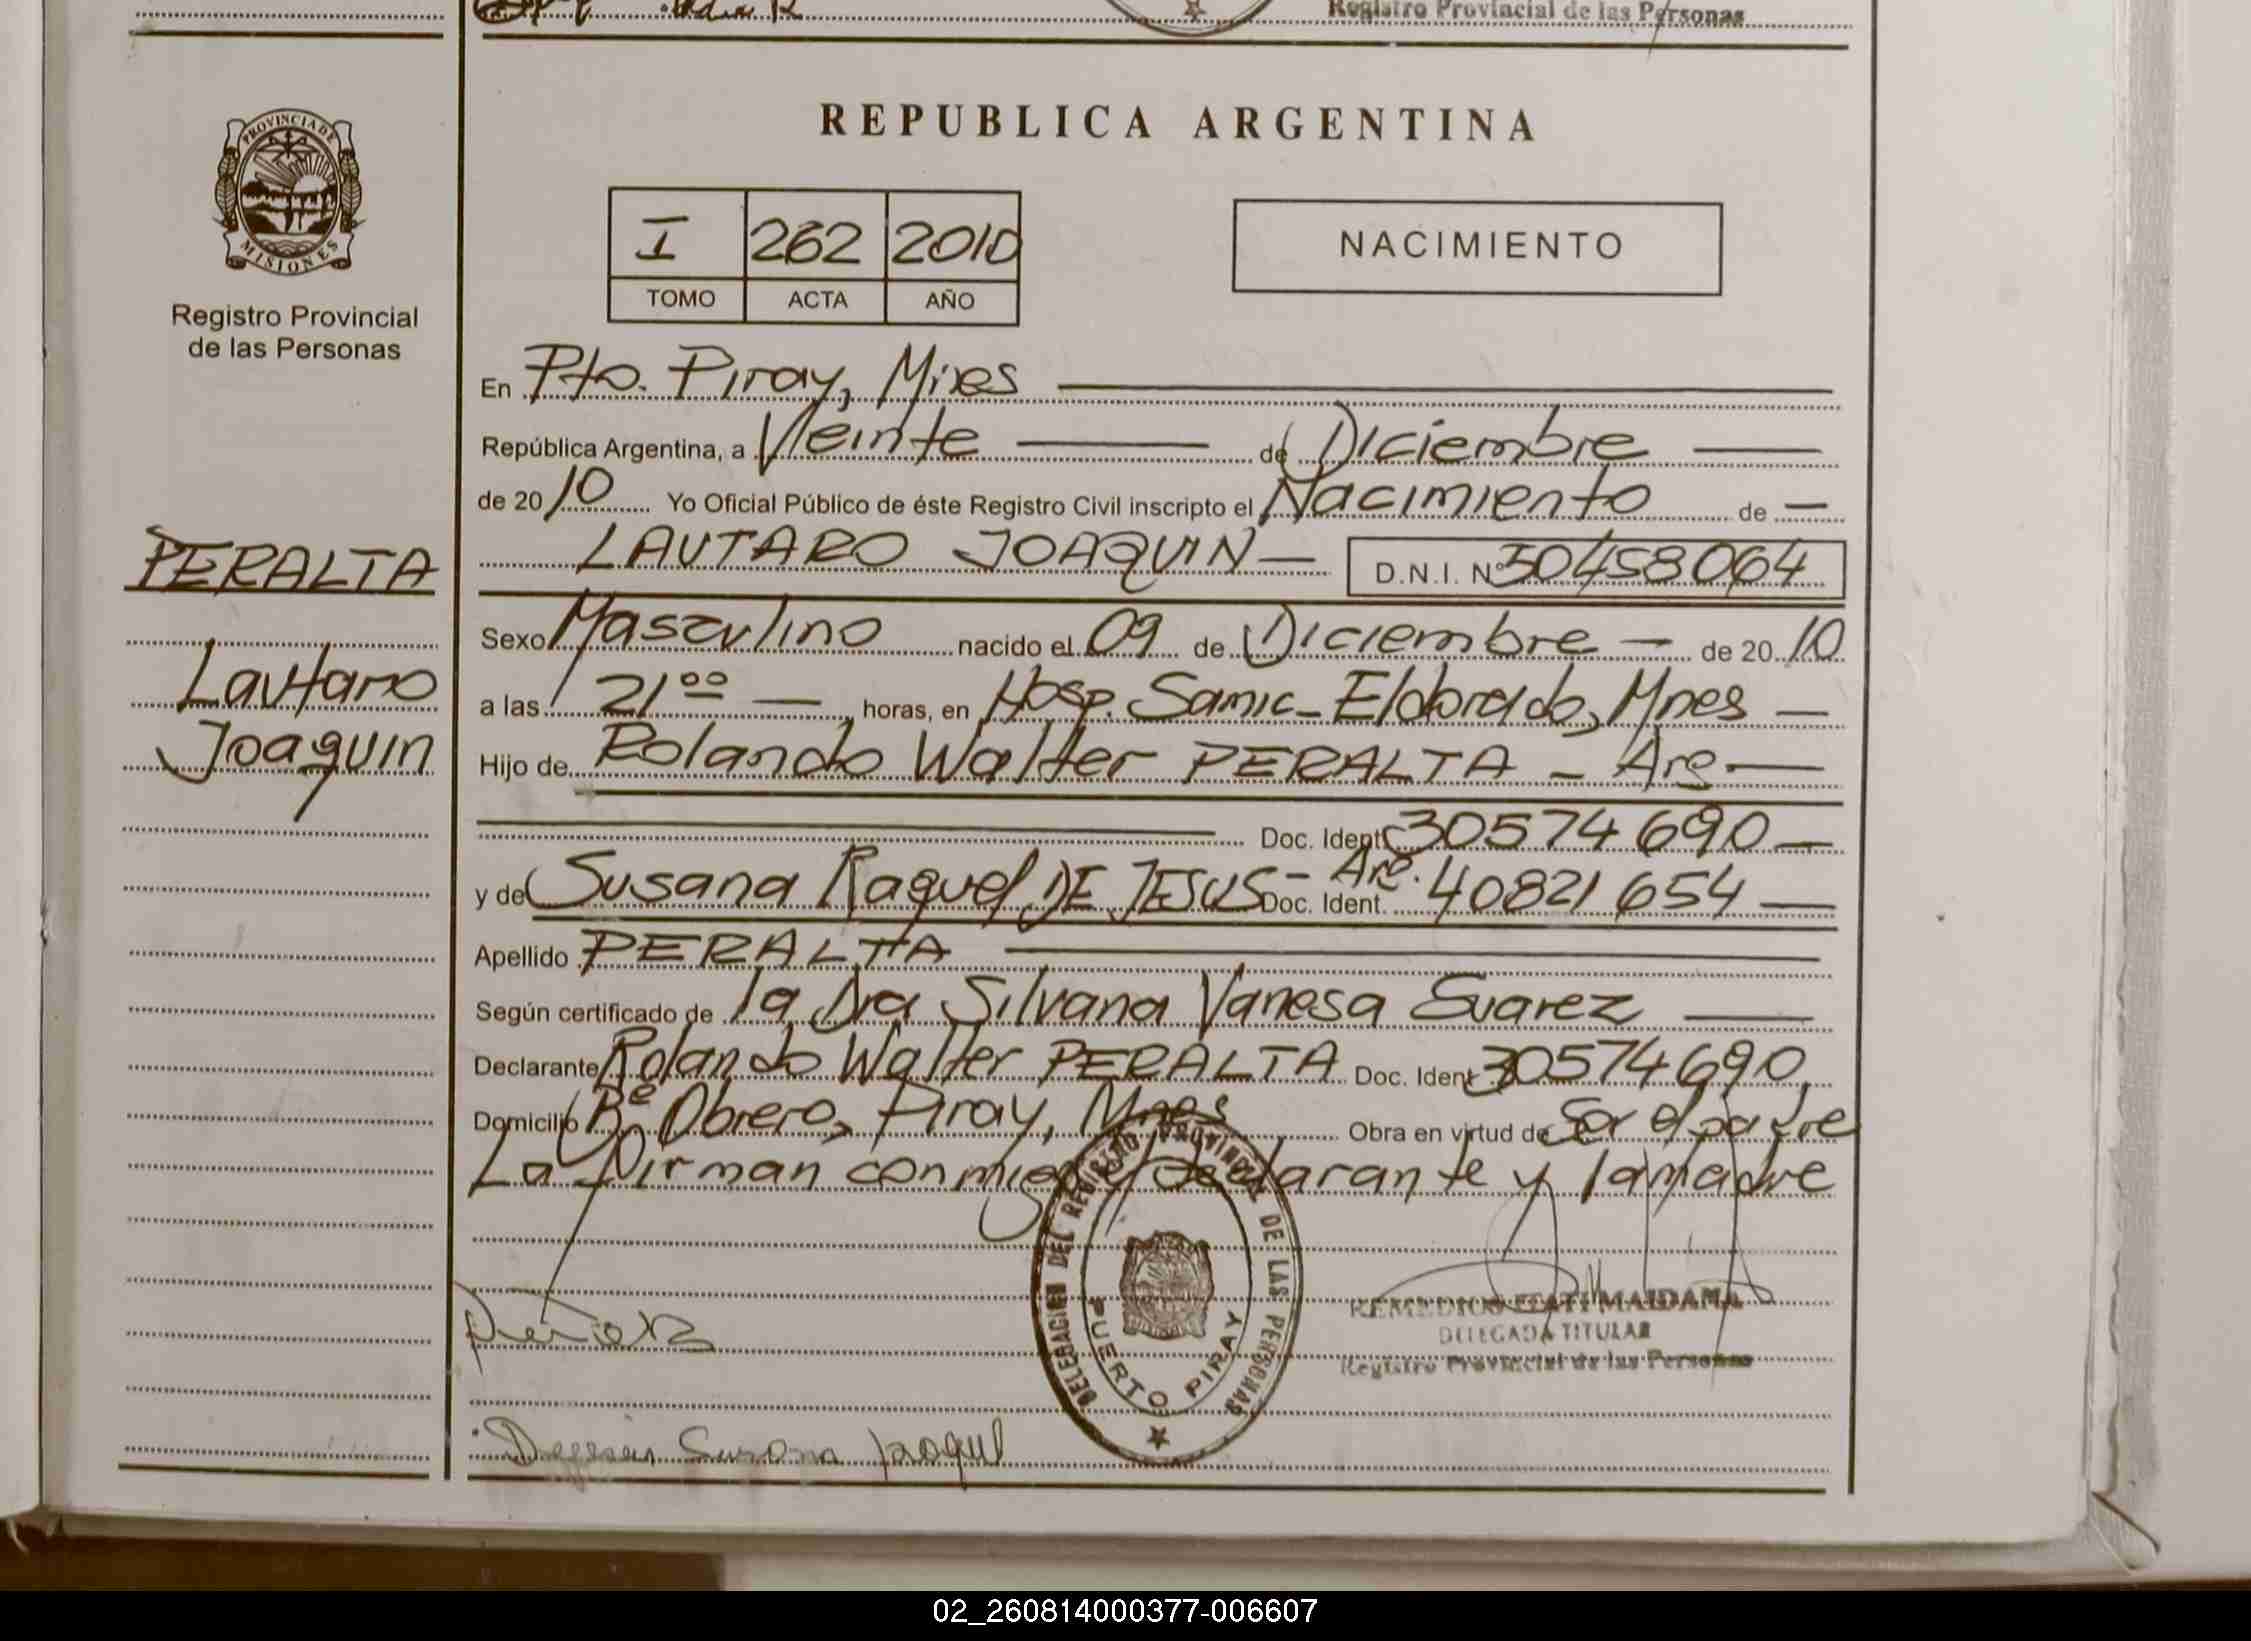 Registro Provincial de las Personas
PROVINCIA DE
MISIONES
Registro Provincial
de las Personas
PERALTA
Lautaro
Joaquin
REPUBLICA ARGENTINA
I 262 2010
TOMO ACTA AÑO
NACIMIENTO
En Pto. Piray, Mnes
República Argentina, a Veinte de Diciembre
de 2010 Yo Oficial Público de éste Registro Civil inscripto el Nacimiento de
LAUTARO JOAQUIN D.N.I. Nº 50458064
Sexo Masculino nacido el 09 de Diciembre de 2010
a las 21 00 horas, en Hosp. Samic - Eldorado, Mnes
Hijo de Rolando Walter PERALTA - Arg
Doc. Ident. 30574690
y de Susana Raquel DE JESUS - Arg. Doc. Ident. 40821654
Apellido PERALTA
Según certificado de la Dra Silvana Vanesa Suarez
Declarante Rolando Walter PERALTA Doc. Ident 30574690
Domicilio Bº Obrero, Piray, Mnes Obra en virtud de Ser el padre
La firman conmigo el declarante y la madre
DELEGACION DEL REGISTRO PROVINCIAL DE LAS PERSONAS
PUERTO PIRAY
REMEDIOS ITATI MAIDANA
DELEGADA TITULAR
Registro Provincial de las Personas
Susana Raquel
02_260814000377-006607